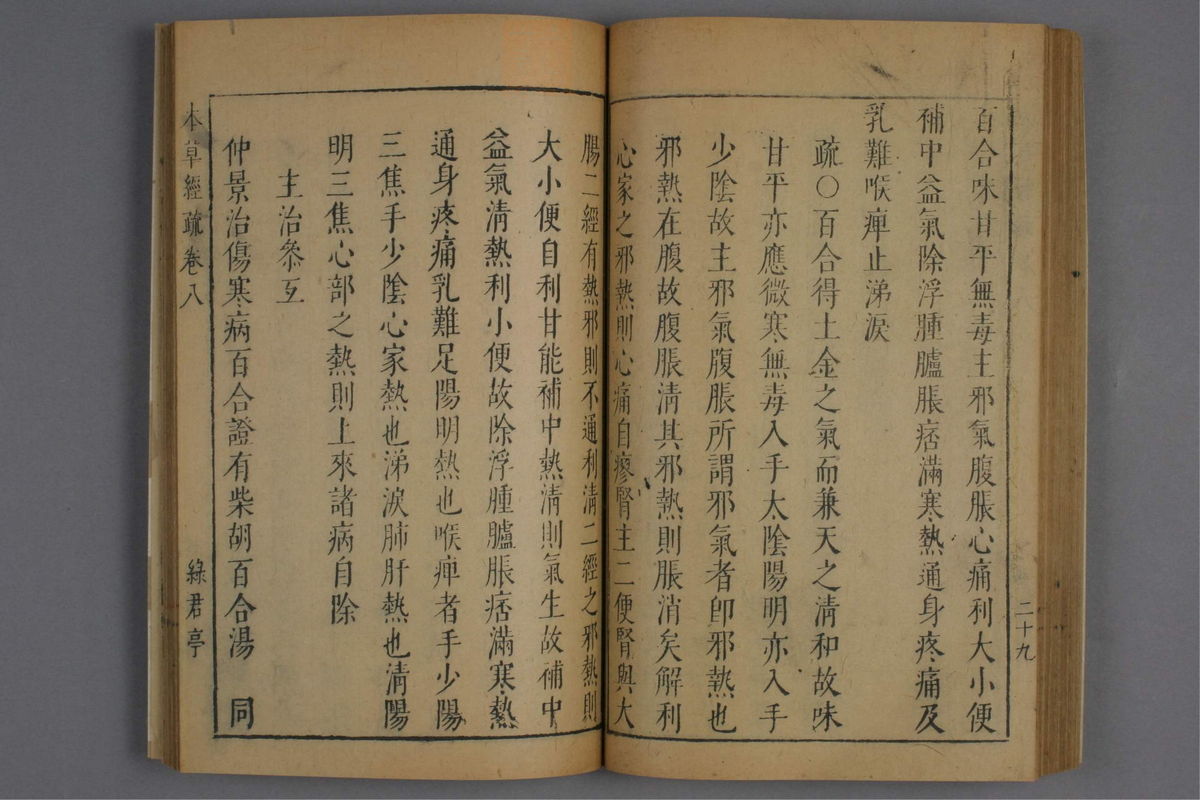 二十九
百合味甘平無毒主邪氣腹脹心痛利大小便
補中益氣除浮腫臚脹痞滿寒熱通身疼痛及
乳難喉痺止涕淚
疏○百合得土金之氣而兼天之清和故味
甘平亦應微寒無毒入手太陰陽明亦入手
少陰故主邪氣腹脹所謂邪氣者卽邪熱也
邪熱在腹故腹脹淸其邪熱則脹消矣解利
心家之邪熱則心痛自瘳腎主二便腎與大
腸二經有熱邪則不通利淸二經之邪熱則
大小便自利甘能補中熱淸則氣生故補中
益氣淸熱利小便故除浮腫臚脹痞滿寒熱
通身疼痛乳難足陽明熱也喉痺者手少陽
三焦手少陰心家熱也涕淚肺肝熱也清陽
明三焦心部之熱則上來諸病自除
主治叅互
仲景治傷寒病百合證有柴胡百合湯 同
本草經疏卷八 綠君亭